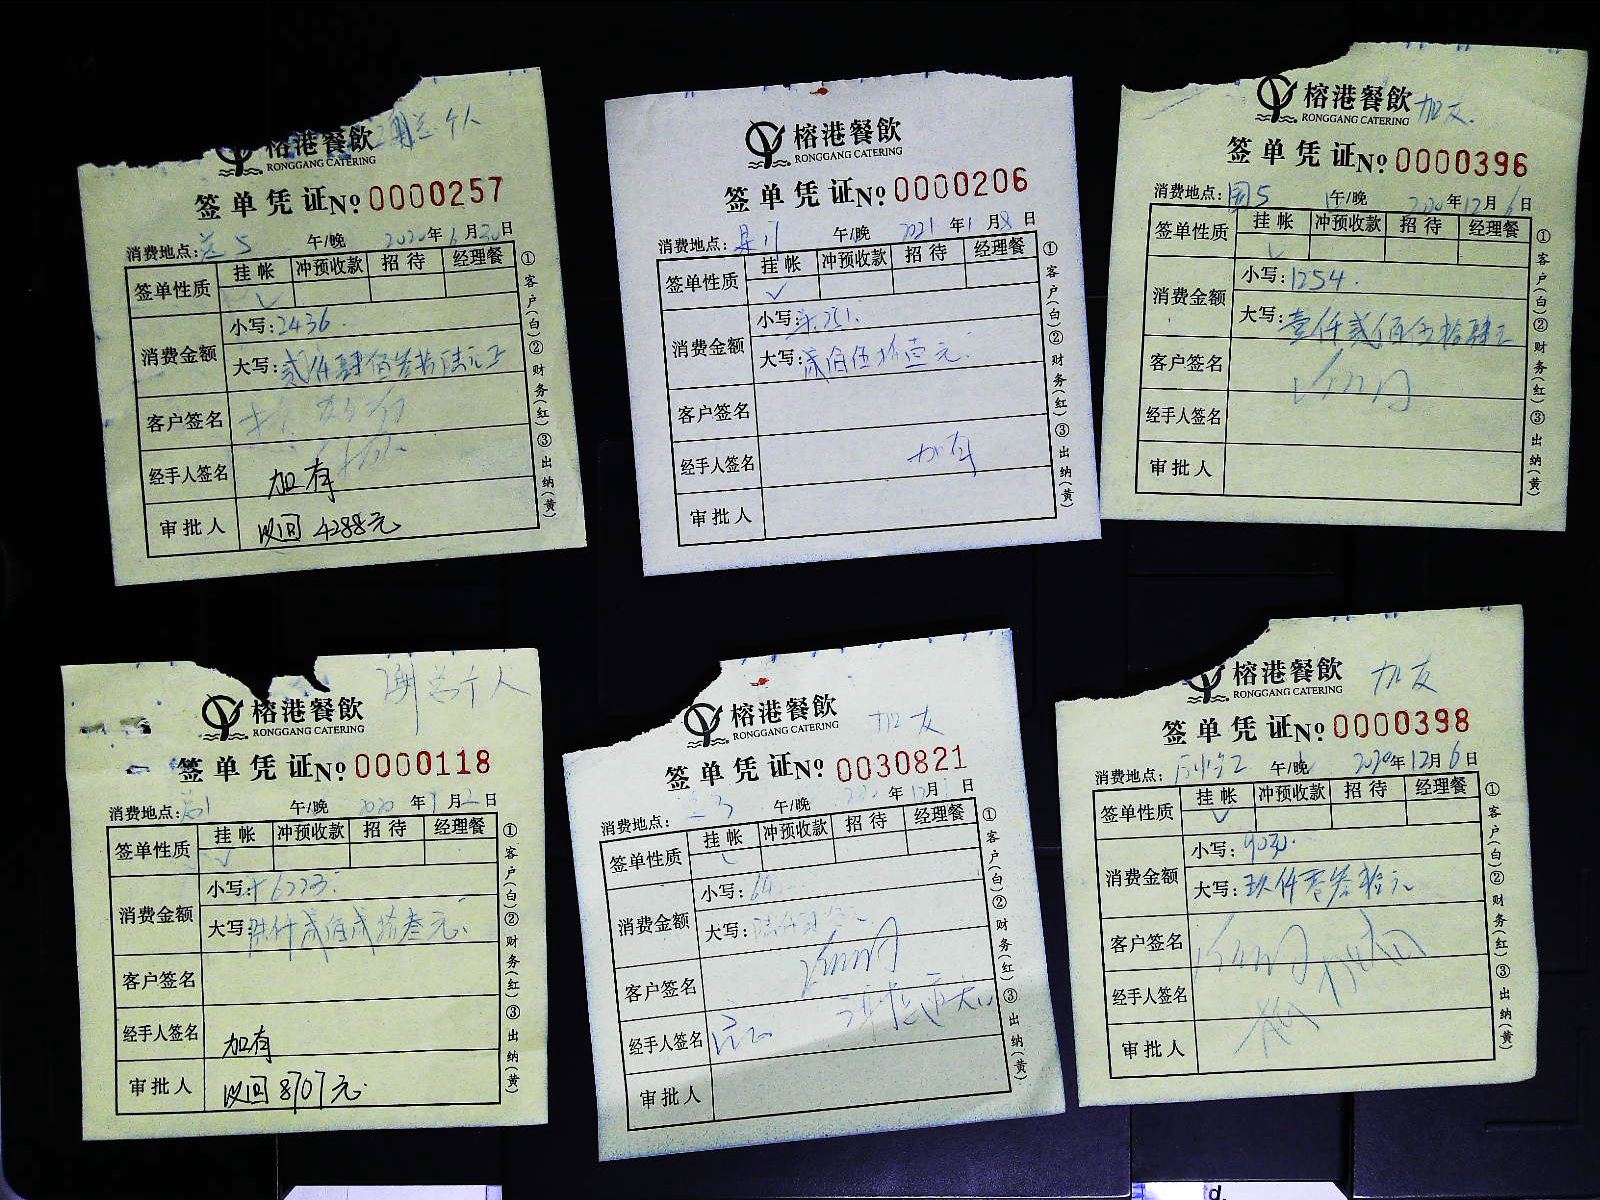 个人
榕港餐飲
RONGGANG CATERING
签单凭证 No 0000257
消费地点: 5 午/晚 2020年6月30日
签单性质 挂帐 冲预收款 招待 经理餐
✓
消费金额 小写:2436.
大写:贰仟肆佰叁拾陆元正
客户签名
经手人签名 加有
审批人 4288元
①客户(白)②财务(红)③出纳(黄)
榕港餐飲
RONGGANG CATERING
签单凭证 No 0000206
消费地点: 午/晚 2021年1月8日
签单性质 挂帐 冲预收款 招待 经理餐
✓
消费金额 小写:251.
大写:贰佰伍拾壹元.
客户签名
经手人签名 加有
审批人
①客户(白)②财务(红)③出纳(黄)
榕港餐飲 加友.
RONGGANG CATERING
签单凭证 No 0000396
消费地点: 5 午/晚 2020年12月6日
签单性质 挂帐 冲预收款 招待 经理餐
✓
消费金额 小写:1254.
大写:壹仟贰佰伍拾肆元
客户签名
经手人签名
审批人
①客户(白)②财务(红)③出纳(黄)
谢总个人
榕港餐飲
RONGGANG CATERING
签单凭证 No 0000118
消费地点: 午/晚 2020年 月2日
签单性质 挂帐 冲预收款 招待 经理餐
✓
消费金额 小写:6223.
大写:陆仟贰佰贰拾叁元.
客户签名
经手人签名 加有
审批人 8707元.
①客户(白)②财务(红)③出纳(黄)
榕港餐飲 加友
RONGGANG CATERING
签单凭证 No 0030821
消费地点: 午/晚 年12月 日
签单性质 挂帐 冲预收款 招待 经理餐
消费金额 小写:
大写:
客户签名
经手人签名
审批人
①客户(白)②财务(红)③出纳(黄)
榕港餐飲 加友
RONGGANG CATERING
签单凭证 No 0000398
消费地点: 午/晚 2020年12月6日
签单性质 挂帐 冲预收款 招待 经理餐
✓
消费金额 小写:9030.
大写:玖仟零叁拾元
客户签名
经手人签名
审批人
①客户(白)②财务(红)③出纳(黄)
d.